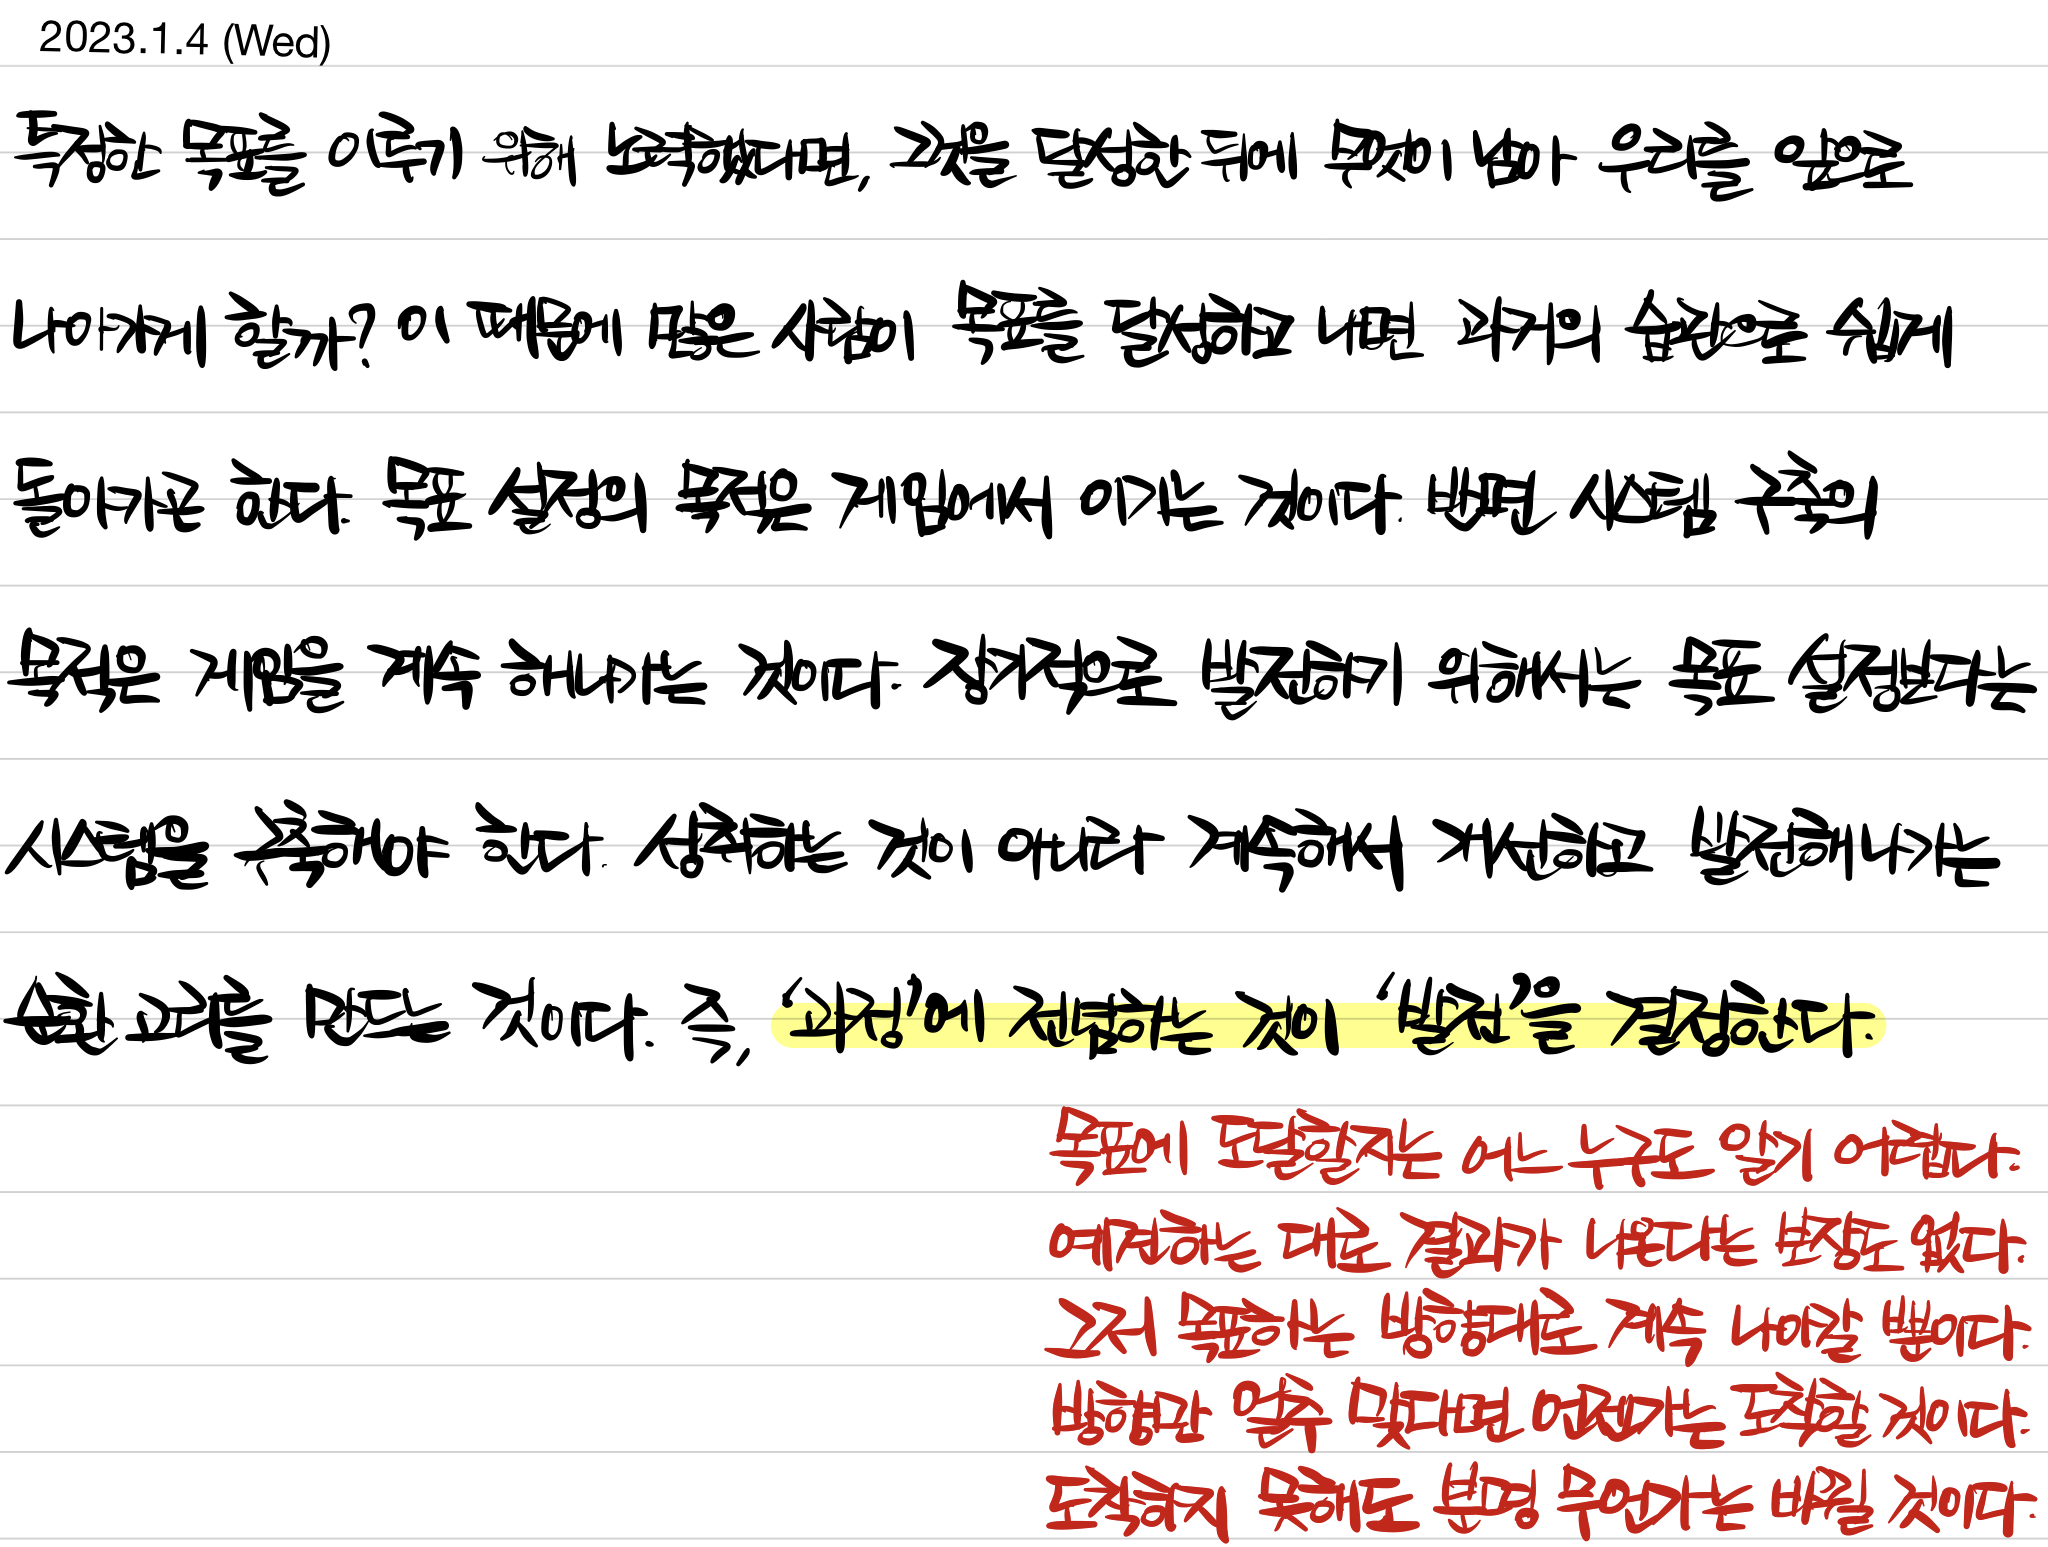 2023.1.4 (Wed)
특정한 목표를 이루기 위해 노력했다면, 그것을 달성한 뒤에 무엇이 남아 우리를 앞으로
나아가게 할까? 이 때문에 많은 사람이 목표를 달성하고 나면 과거의 습관으로 쉽게
돌아가곤 한다. 목표 설정의 목적은 게임에서 이기는 것이다. 반면 시스템 구축의
목적은 게임을 계속 해나가는 것이다. 장기적으로 발전하기 위해서는 목표 설정보다는
시스템을 구축해야 한다. 성취하는 것이 아니라 계속해서 개선하고 발전해나가는
순환 고리를 만드는 것이다. 즉, ‘과정’에 전념하는 것이 ‘발전’을 결정한다.
목표에 도달할지는 어느 누구도 알기 어렵다.
예견하는 대로 결과가 나온다는 보장도 없다.
그저 목표하는 방향대로 계속 나아갈 뿐이다.
방향만 얼추 맞다면 언젠가는 도착할 것이다.
도착하지 못해도 분명 무언가는 바뀔 것이다.